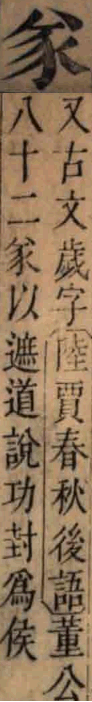 㒸
又古文歲字陸賈春秋後語董公
八十二㒸以遮道說功封爲侯